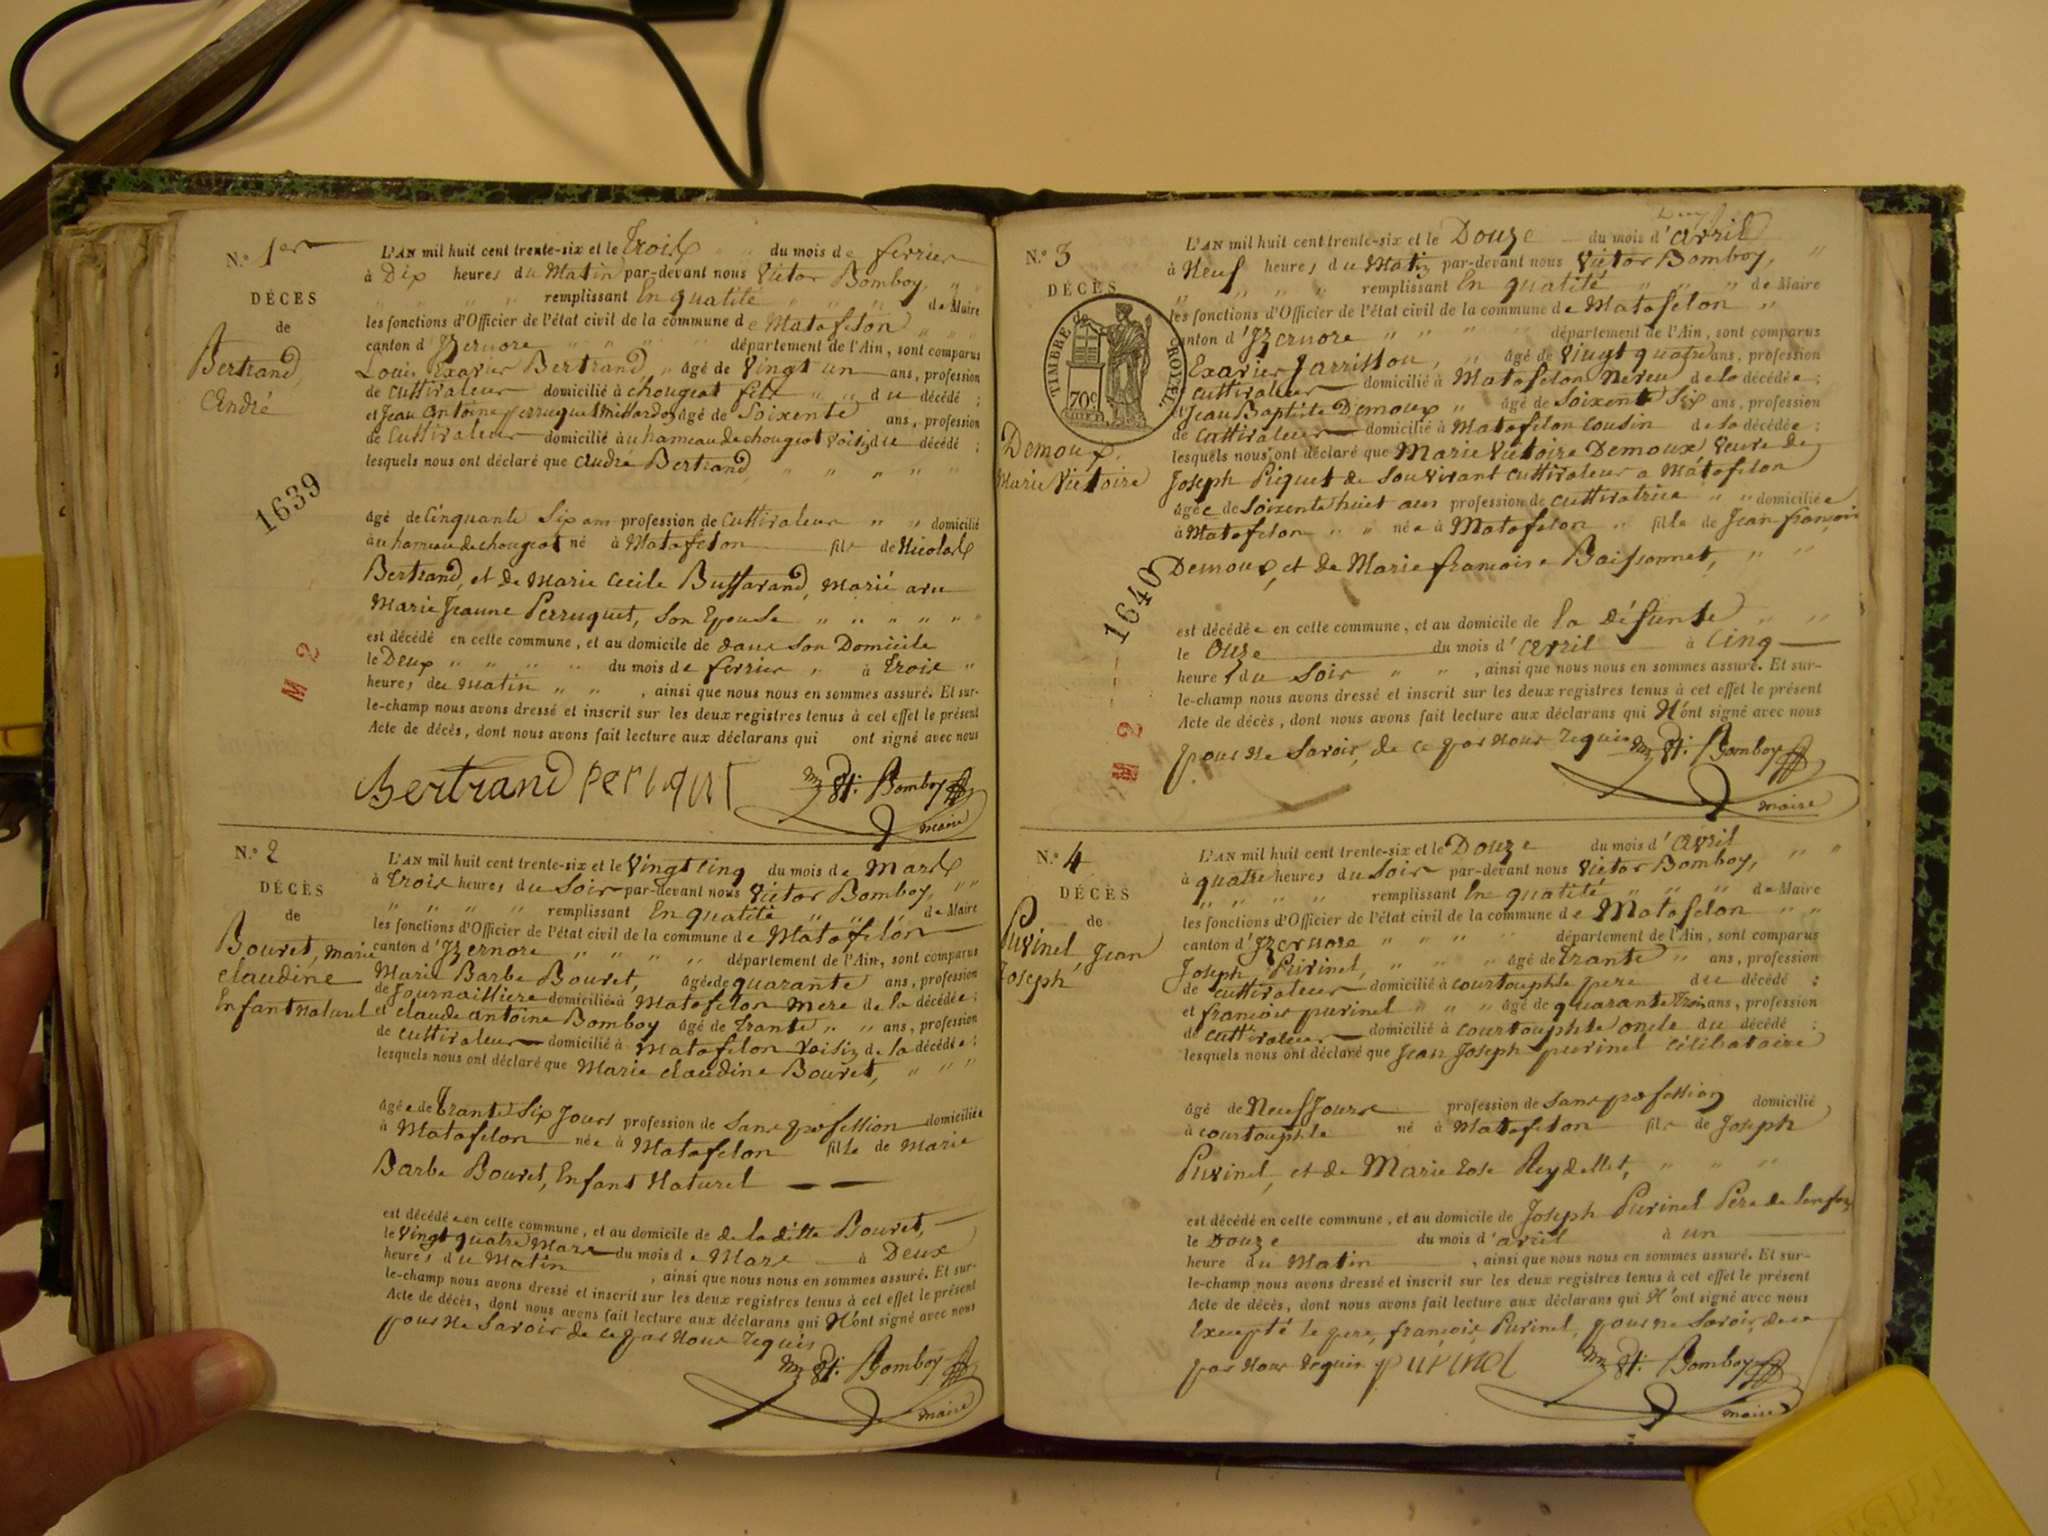 N.º 1er
DÉCES
de
Bertrand,
André
1639
M 2
L'AN mil huit cent trente-six et le Trois du mois de fevrier
à Dix heures du Matin par-devant nous Victor Bomboy, " "
" " " " remplissant En qualité " " " de Maire
les fonctions d'Officier de l'état civil de la commune de Matafelon " "
canton d'Izernore " " " " département de l'Ain, sont comparus
Louis Exavier Bertrand, " âgé de Vingt un ans, profession
de Cultivateur domicilié à chougeat fils " " du décédé ;
et Jean Antoine perruquet âgé de Soixente ans, profession
de Cultivateur domicilié au hameau de chougeat voisin du décédé ;
lesquels nous ont déclaré que André Bertrand " " " " "
âgé de Cinquante Six ans profession de Cultivateur " " domicilié
au hameau de chougeat né à Matafelon fils de Nicolas
Bertrand, et de Marie Cecile Buffavand, Marié avec
Marie Jeanne Perruquet, Son Epouse " " " " " "
est décédé en cette commune, et au domicile de dans Son Domicile
le Deux " " " " du mois de fevrier " à trois "
heures du Matin " " , ainsi que nous nous en sommes assuré. Et sur-
le-champ nous avons dressé et inscrit sur les deux registres tenus à cet effet le présent
Acte de décès, dont nous avons fait lecture aux déclarans qui ont signé avec nous
Bertrand periquet Bomboy
maire
N.º 2
DÉCÈS
de
Bouvet, Marie
Claudine
Enfant Naturel
L'AN mil huit cent trente-six et le Vingt Cinq du mois de Mars
à trois heures du Soir par-devant nous Victor Bomboy, " "
" " " " remplissant En qualité " " " de Maire
les fonctions d'Officier de l'état civil de la commune de Matafelon
canton d'Izernore " " " " département de l'Ain, sont comparus
Marie Barbe Bouvet, âgée de quarante ans, profession
de Journailliere domiciliée à Matafelon Mere de la décédée ;
et claude antoine Bomboy âgé de trante " " ans, profession
de cultivateur domicilié à Matafelon voisin de la décédée ;
lesquels nous ont déclaré que Marie claudine Bouvet, " " "
âgée de trante Six Jours profession de Sans profession domiciliée
à Matafelon née à Matafelon fille de Marie
Barbe Bouvet, Enfant Naturel
est décédée en cette commune, et au domicile de de la ditte Bouvet,
le Vingt quatre Mars du mois de Mars à Deux
heures du Matin , ainsi que nous nous en sommes assuré. Et sur-
le-champ nous avons dressé et inscrit sur les deux registres tenus à cet effet le présent
Acte de décès, dont nous avons fait lecture aux déclarans qui N'ont signé avec nous
pour ne Savoir de ce par nous requis
Bomboy
maire
N.º 3
DÉCÈS
TIMBRE ROYAL.
70c
Demoux,
Marie Victoire
1640
M 2
L'AN mil huit cent trente-six et le Douze du mois d'avril
à Neuf heures du Matin par-devant nous Victor Bomboy, "
" " " " remplissant En qualité " " " de Maire
les fonctions d'Officier de l'état civil de la commune de Matafelon "
canton d'Izernore " " " " département de l'Ain, sont comparus
Exavier Jarrillou, " âgé de Vingt quatre ans, profession
cultivateur domicilié à Matafelon Neveu de la décédée ;
et Jean Baptiste Demoux " âgé de Soixente Six ans, profession
de cultivateur domicilié à Matafelon cousin de la décédée ;
lesquels nous ont déclaré que Marie Victoire Demoux Veuve de
Joseph Piquet de Son vivant cultivateur a Matafelon
âgée de Soixente huit ans profession de cultivatrice " " domiciliée
à Matafelon " " née à Matafelon " fille de Jean françois
Demoux, et de Marie francoise Boissonnet, " "
est décédée en cette commune, et au domicile de la défunte " "
le Onze du mois d'avril à Cinq
heures du Soir " " , ainsi que nous nous en sommes assuré. Et sur-
le-champ nous avons dressé et inscrit sur les deux registres tenus à cet effet le présent
Acte de décès, dont nous avons fait lecture aux déclarans qui N'ont signé avec nous
pour ne Savoir, de ce par nous requis Bomboy
maire
N.º 4
DÉCÈS
de
Puvinel, Jean
Joseph
L'AN mil huit cent trente-six et le Douze du mois d'avril
à quatre heures du Soir par-devant nous Victor Bomboy, " "
" " " " remplissant En qualité " " " de Maire
les fonctions d'Officier de l'état civil de la commune de Matafelon " "
canton d'Izernore " " " " département de l'Ain, sont comparus
Joseph Puvinel, " " " " âgé de trante " ans, profession
de cultivateur domicilié à courtouphle pere du décédé ;
et francois puvinel " " " âgé de quarante trois ans, profession
de cultivateur domicilié à courtouphle oncle du décédé ;
lesquels nous ont déclaré que Jean Joseph puvinel célibataire
âgé de Neuf Jours profession de sans profession domicilié
à courtouphle né à Matafelon fils de Joseph
Puvinel, et de Marie rose Reydellet, " " "
est décédé en cette commune, et au domicile de Joseph Puvinel Père de l'enfant
le Douze du mois d'avril à un
heure du Matin , ainsi que nous nous en sommes assuré. Et sur-
le-champ nous avons dressé et inscrit sur les deux registres tenus à cet effet le présent
Acte de décès, dont nous avons fait lecture aux déclarans qui N'ont signé avec nous
Excepté le pere, francois Puvinel, pour ne Savoir, de ce
par nous requis puvinel Bomboy
maire